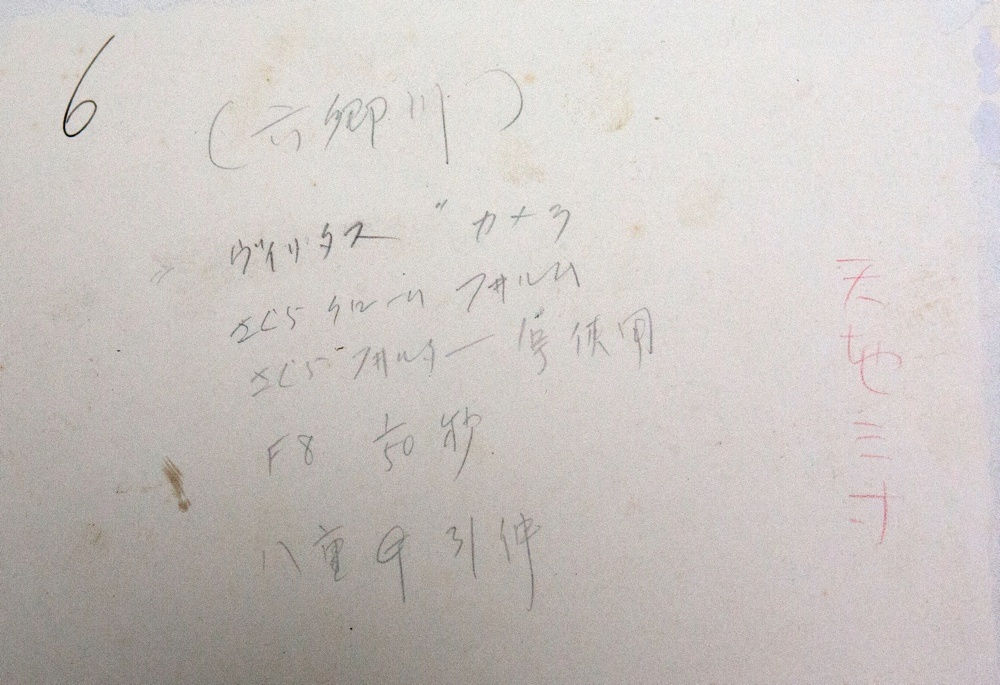 6
(六郷川)
ヴイリタス" カメラ
さくらクロームフォルム
さくらフォルター 使用
F8 1/50秒
八重 引伸
天地三寸